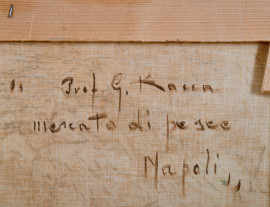 " Prof. G. Kassa
mercato di pesce
Napoli „